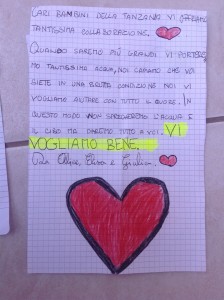 CARI BAMBINI DELLA TANZANIA VI OFFRIAMO
TANTISSIMA COLLABORAZIONE,
QUANDO SAREMO PIÙ GRANDI VI PORTERE-
MO TANTISSIMA ACQUA, NOI CREDIAMO CHE VOI
SIETE IN UNA BRUTTA CONDIZIONE NOI VI
VOGLIAMO AIUTARE CON TUTTO IL CUORE. IN
QUESTO MODO NON SPRECHEREMO L'ACQUA E
IL CIBO MA DAREMO TUTTO A VOI. VI
VOGLIAMO BENE.
Da Elisa e Giulia.